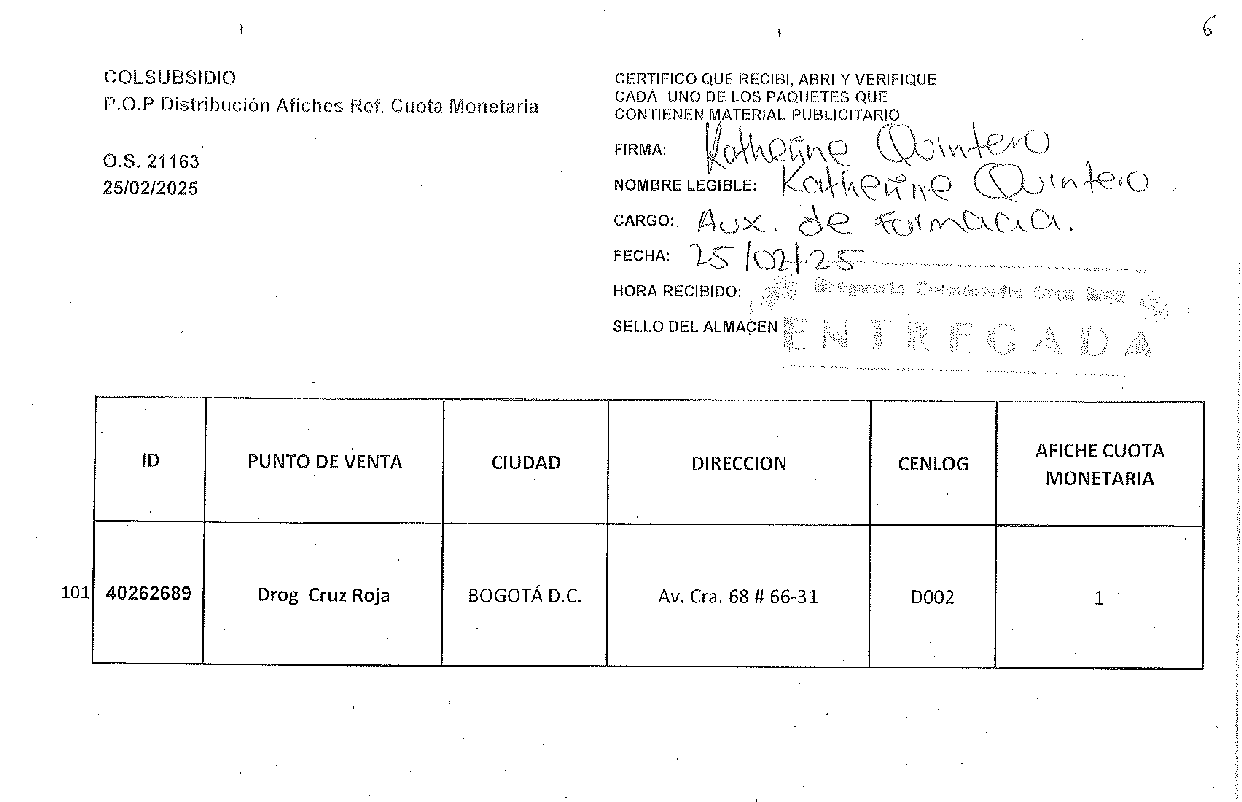 6
COLSUBSIDIO
P.O.P Distribución Afiches Ref. Cuota Monetaria
O.S. 21163
25/02/2025
CERTIFICO QUE RECIBI, ABRI Y VERIFIQUE
CADA UNO DE LOS PAQUETES QUE
CONTIENEN MATERIAL PUBLICITARIO
FIRMA: Katherine Quintero
NOMBRE LEGIBLE: Katherine Quintero
CARGO: Aux. de Farmacia.
FECHA: 25/02/25
HORA RECIBIDO: Drogueria Colsubsidio Cruz Roja
SELLO DEL ALMACEN ENTREGADA
ID PUNTO DE VENTA CIUDAD DIRECCION CENLOG AFICHE CUOTA
MONETARIA
101 40262689 Drog Cruz Roja BOGOTÁ D.C. Av. Cra. 68 # 66-31 D002 1